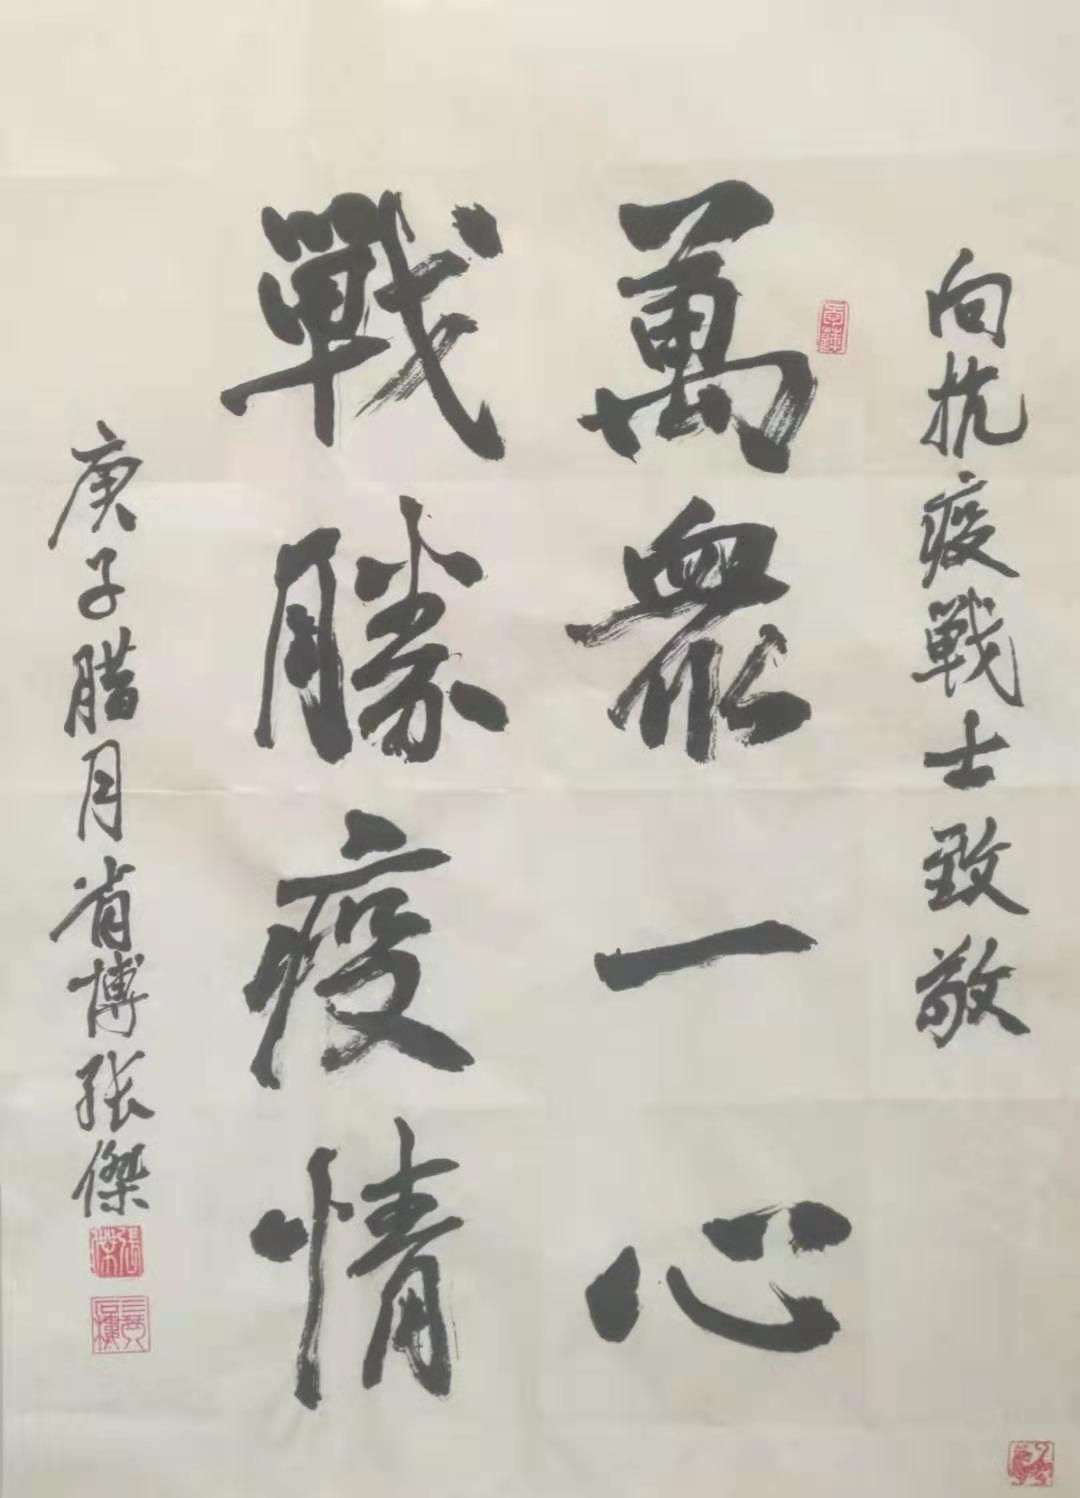 向抗疫戰士致敬
萬眾一心
戰勝疫情
庚子腊月肖博張傑
張傑